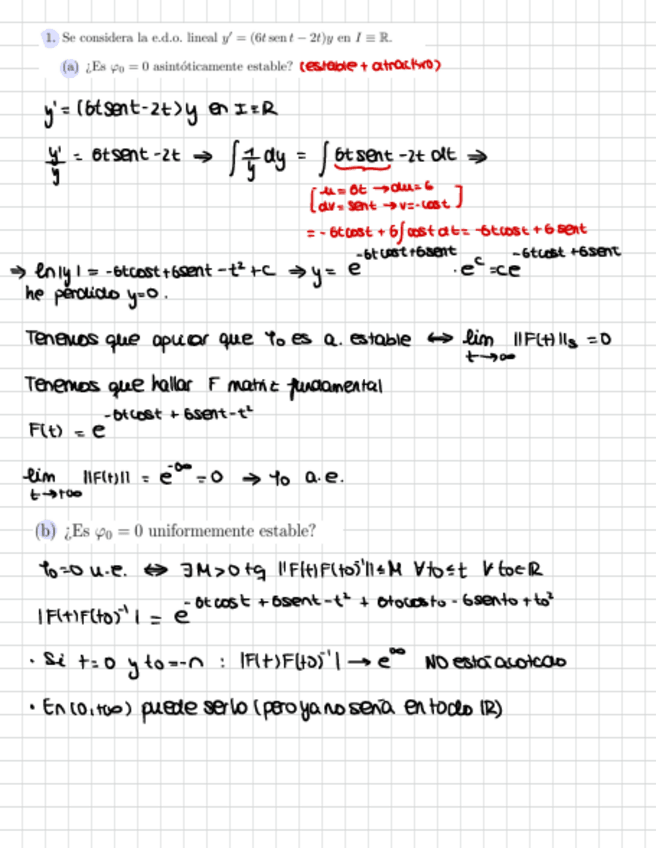 1. Se considera la e.d.o. lineal y' = (6t sen t − 2t)y en I ≡ ℝ.
(a) ¿Es φ₀ = 0 asintóticamente estable? (estable + atractivo)
y' = (6tsent-2t)y en I≡ℝ
y'/y = 6tsent-2t ⇒ ∫ 1/y dy = ∫ 6tsent -2t dt ⇒
[u = 6t → du=6
dv= sent → v=-cost]
= -6tcost + 6∫cost dt = -6tcost + 6sent
⇒ ln|y| = -6tcost+6sent -t²+c ⇒ y = e^(-6tcost+6sent) · e^c = ce^(-6tcost +6sent)
he perdido y=0.
Tenemos que que φ₀ es a. estable ⇔ lim t→∞ ||F(t)||s =0
Tenemos que hallar F matriz fundamental
F(t) = e^(-6tcost + 6sent-t²)
lim t→+∞ ||F(t)|| = e^(-∞) =0 ⇒ φ₀ a.e.
(b) ¿Es φ₀ = 0 uniformemente estable?
φ₀=0 u.e. ⇔ ∃M>0 tq ||F(t)F(t₀)⁻¹||≤M ∀t₀≤t ∀t₀∈ℝ
|F(t)F(t₀)⁻¹| = e^(-6tcost + 6sent-t² + 6t₀cost₀ - 6sent₀ + t₀²)
· Si t=0 y t₀=-n : |F(t)F(t₀)⁻¹| → e^∞ NO está acotado
· En (0,+∞) puede serlo (pero ya no sería en todo ℝ)